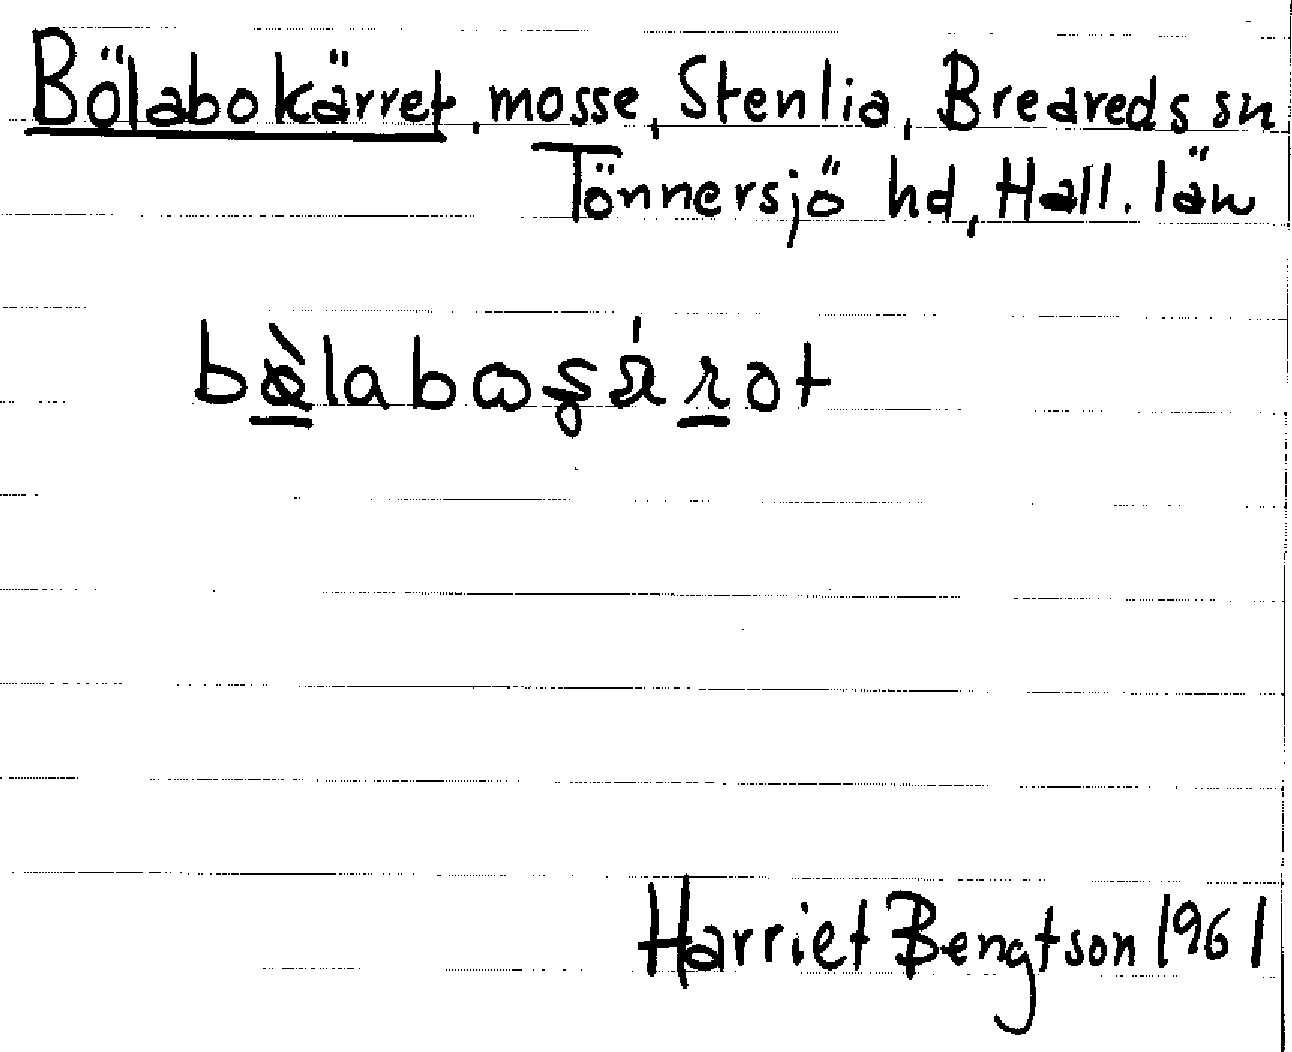 Bölabokärret, mosse, Stenlia, Breareds sn
Tönnersjö hd, Hall. län
Harriet Bengtson 1961